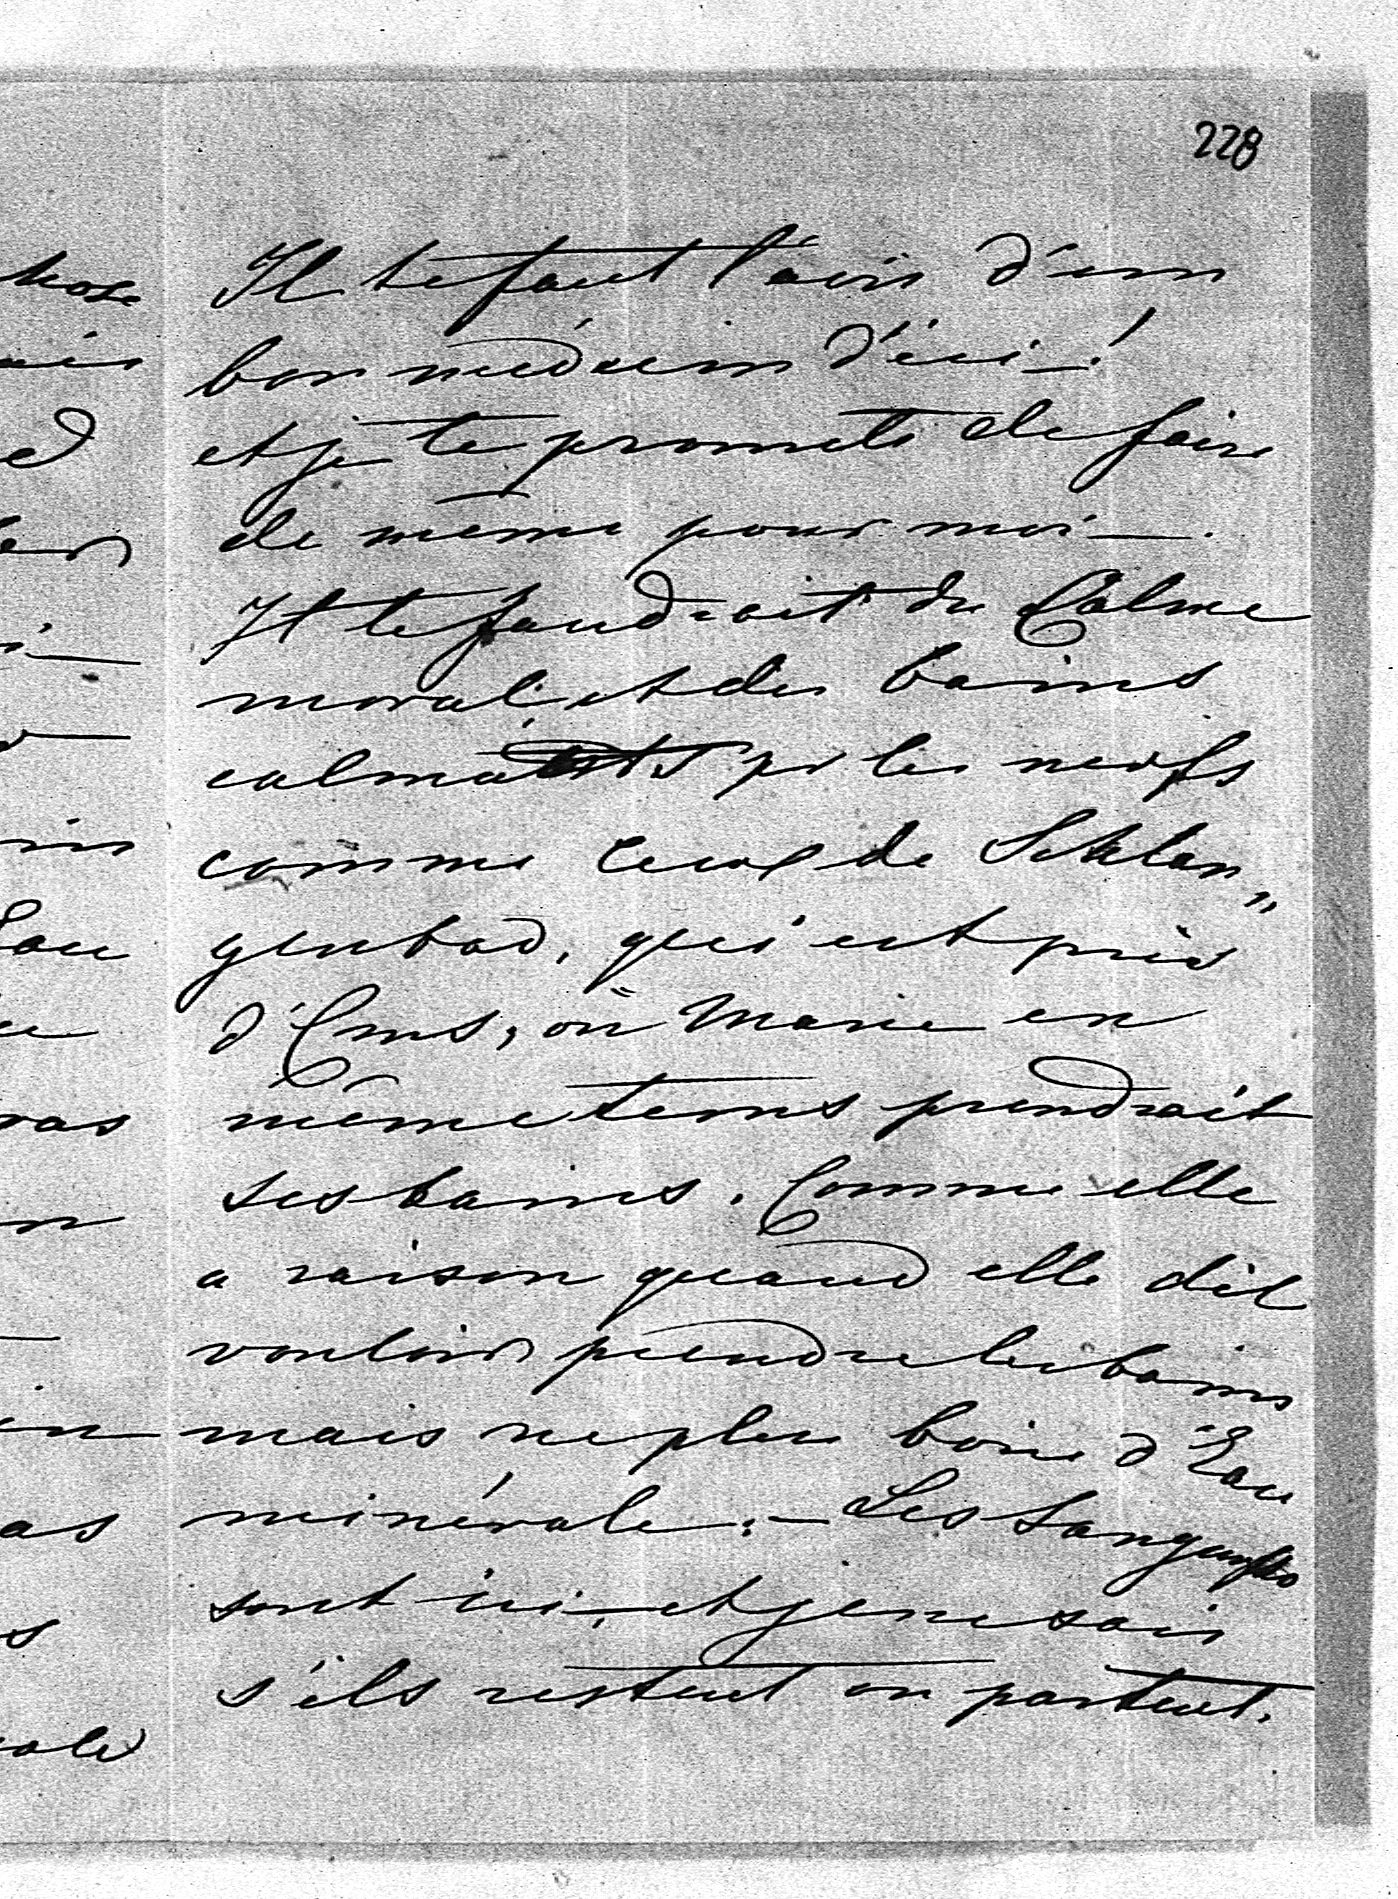 228
Il te faut l'avis d'un
bon médecin d'ici —!
et je te promets de faire
de même pour moi —.
Il te faudrait du Calme
moral, et des bains
calmants pr les nerfs
comme ceux de Schlan„
genbad, qui est près
d'Ems, où Marie en
même tems prendrait
ses bains. Comme elle
a raison quand elle dit
vouloir prendre les bains
mais ne plus boire d'Eau
minérale. — Les
sont ici, et je ne sais
s'ils restent ou partent.